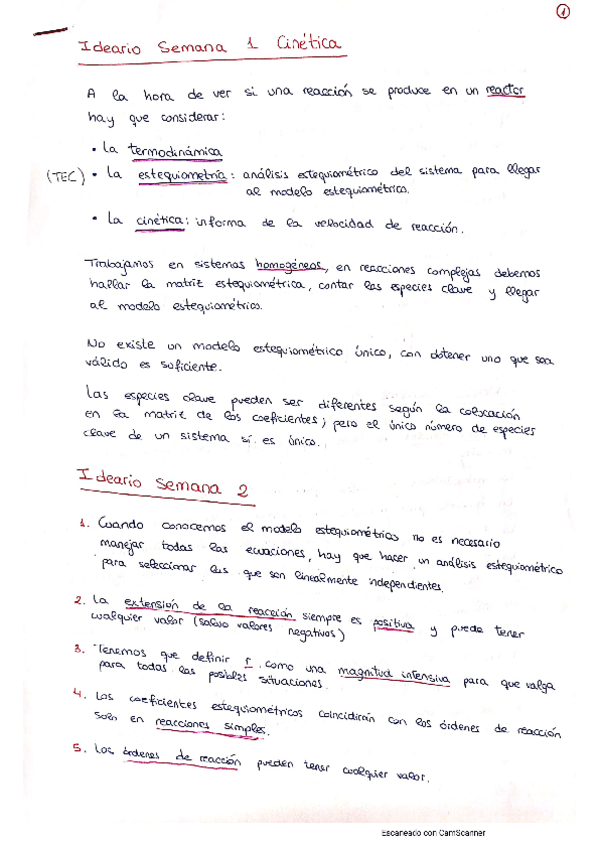 1
Ideario Semana 1 Cinética
A la hora de ver si una reacción se produce en un reactor
hay que considerar:
• La termodinámica
(TEC) • La estequiometría: análisis estequiométrico del sistema para llegar
al modelo estequiométrico.
• La cinética: informa de la velocidad de reacción.
Trabajamos en sistemas homogéneos, en reacciones complejas debemos
hallar la matriz estequiométrica, contar las especies clave y llegar
al modelo estequiométrico.
No existe un modelo estequiométrico único, con obtener uno que sea
válido es suficiente.
Las especies clave pueden ser diferentes según la colocación
en la matriz de los coeficientes; pero el único número de especies
clave de un sistema sí es único.
Ideario Semana 2
1. Cuando conocemos el modelo estequiométrico no es necesario
manejar todas las ecuaciones, hay que hacer un análisis estequiométrico
para seleccionar las que son linealmente independientes.
2. La extensión de la reacción siempre es positiva y puede tener
cualquier valor (salvo valores negativos)
3. Tenemos que definir r como una magnitud intensiva para que valga
para todas las posibles situaciones.
4. Los coeficientes estequiométricos coincidirán con los órdenes de reacción
solo en reacciones simples.
5. Los órdenes de reacción pueden tener cualquier valor.
Escaneado con CamScanner